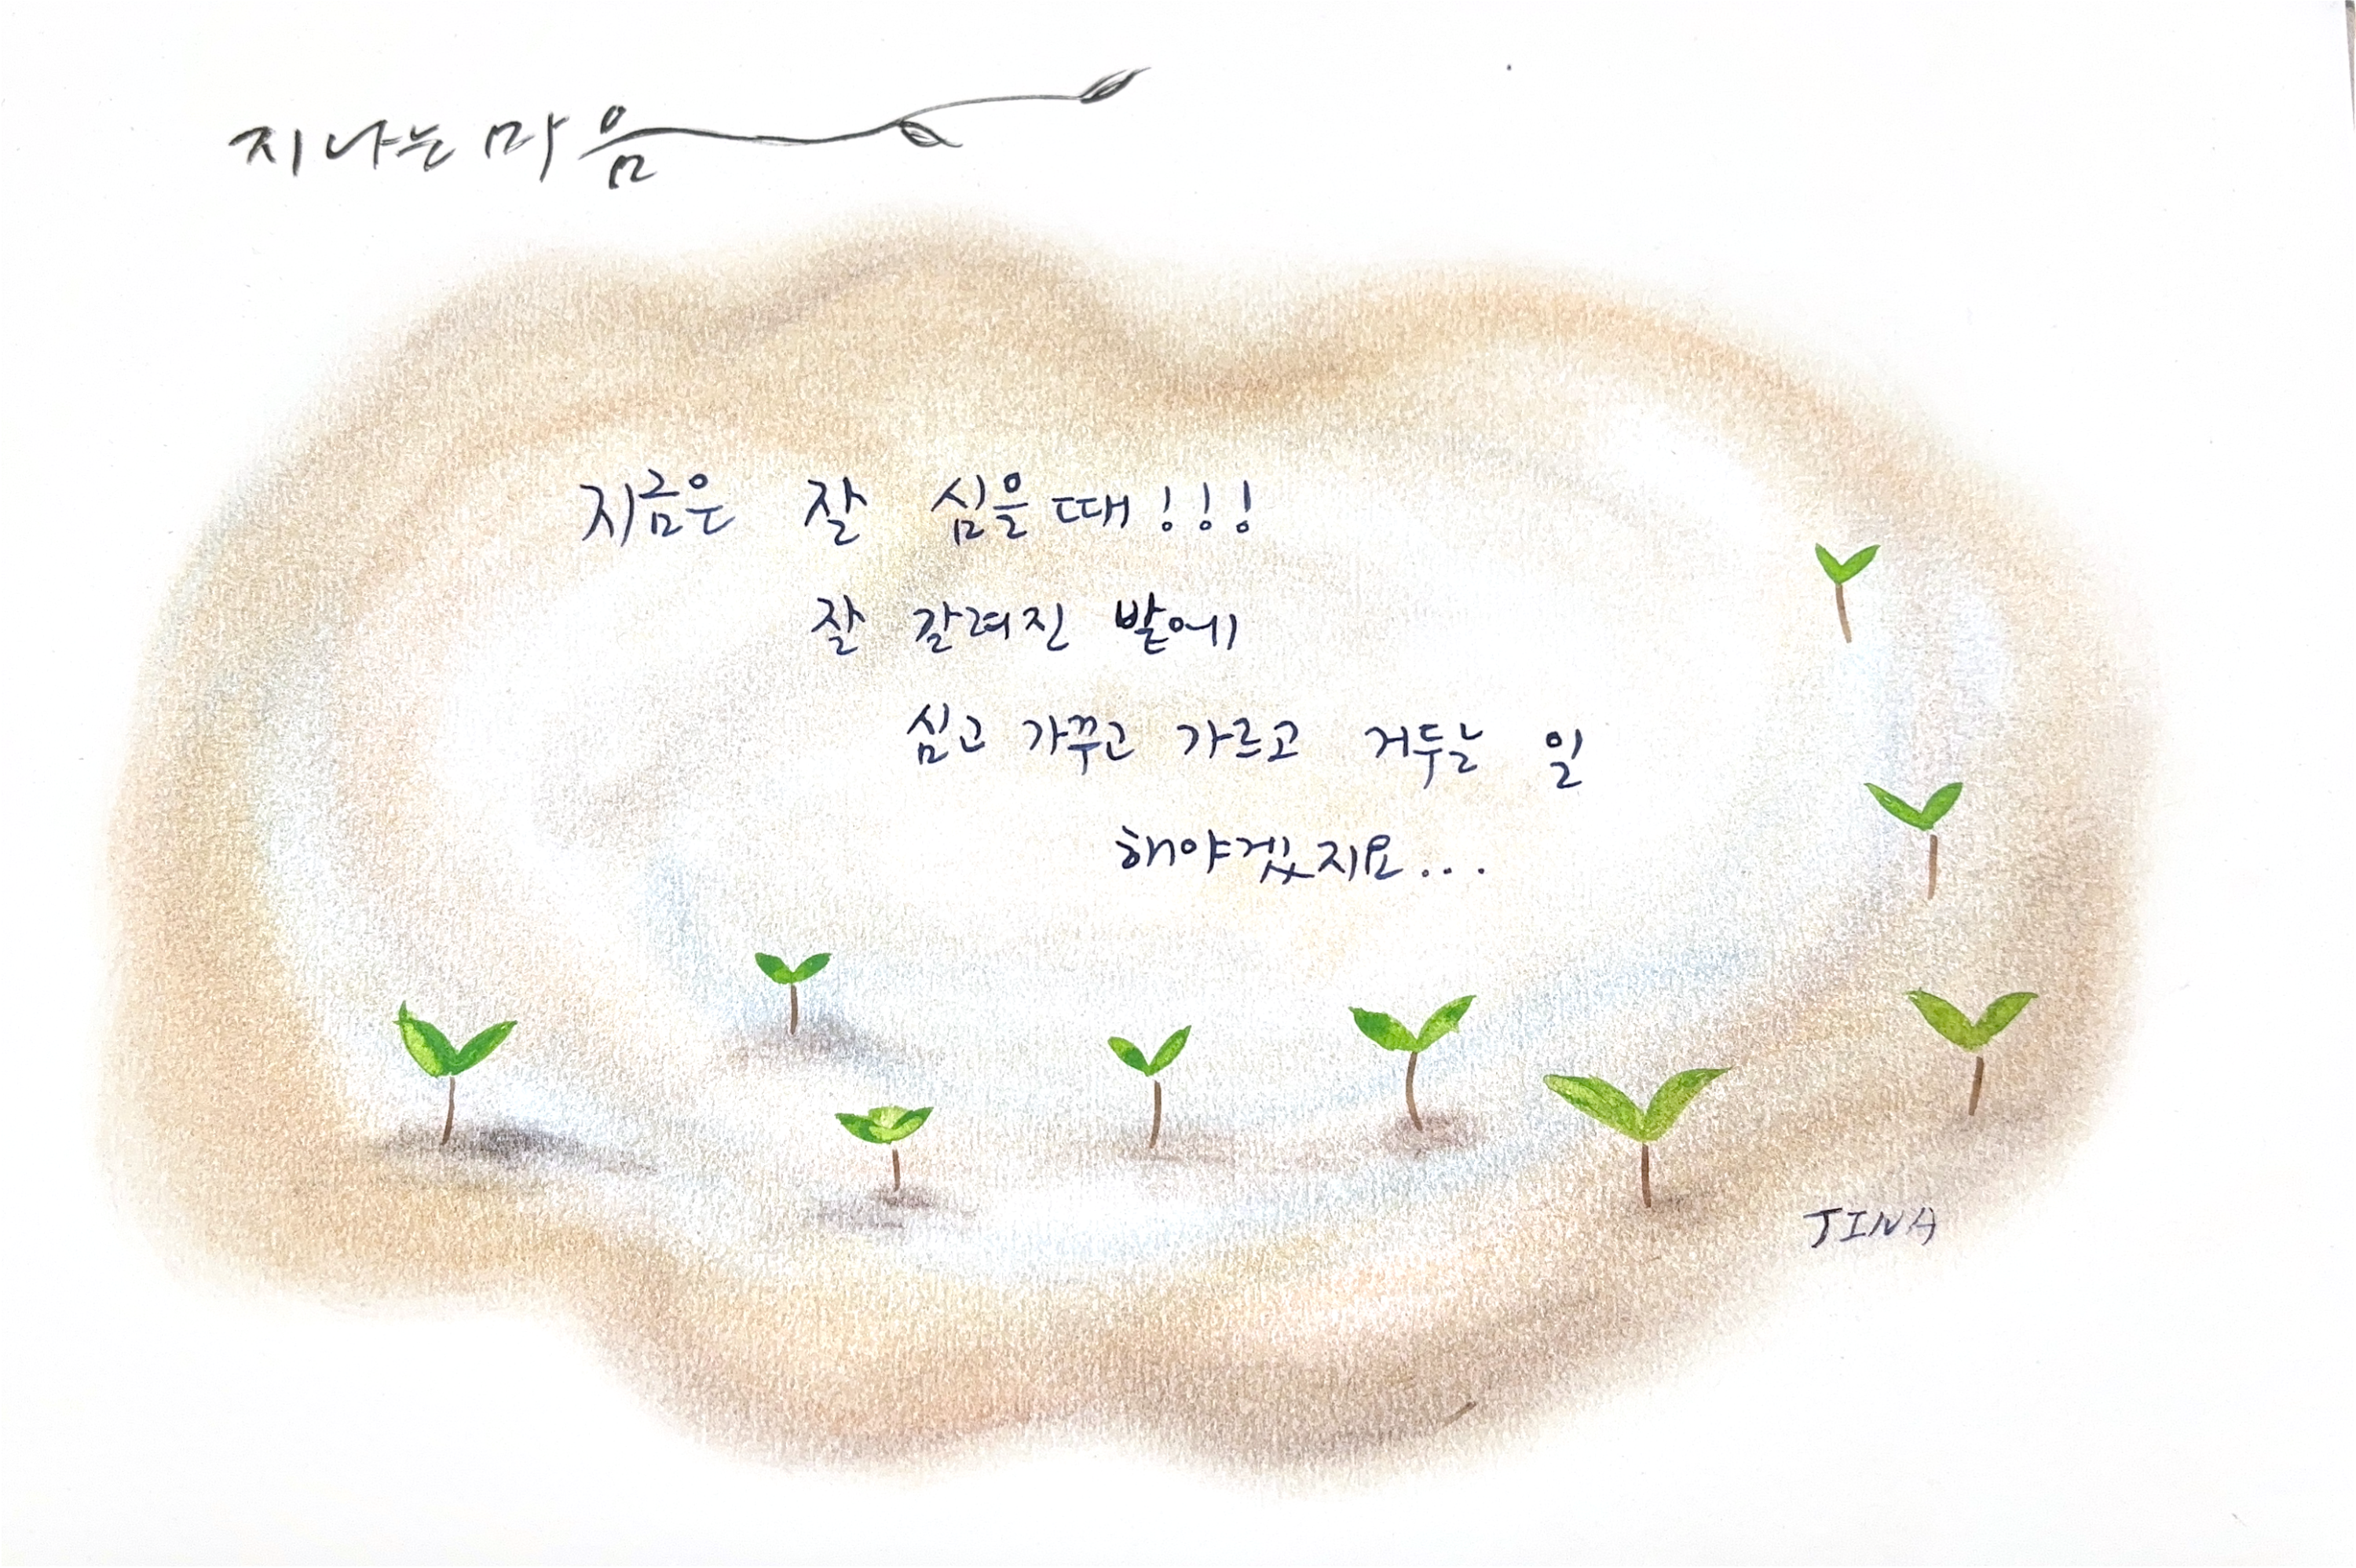 지나는 마음
지금은 잘 심을때!!!
잘 갈려진 밭에
심고 가꾸고 가르고 거두는 일
해야겠지요...
JINA